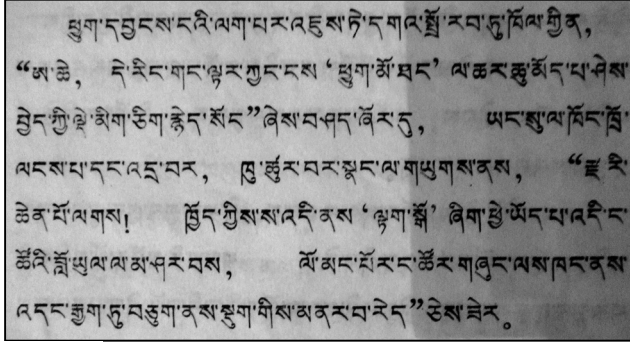 ཕྱུག་དབྱངས་ངའི་ལག་པར་འཇུས་ཏེ་དགའ་སྤྲོ་རབ་ཏུ་ཁོལ་གྱིན,
“ཨ་ཆེ, དེ་རིང་གང་ལྟར་ཀྱང་ངས་‘ཕྱུག་མོ་ཐང’ ལ་ཆར་ཆུ་མོད་པ་ཤེས་
བྱེད་ཀྱི་ལྡེ་མིག་ཅིག་རྙེད་སོང”ཞེས་བཤད་ཞོར་དུ, ཡང་སུ་ལ་ཁོང་ཁྲོ་
ལངས་པ་དང་འདྲ་བར, ཁུ་ཚུར་བར་སྣང་ལ་གཡུགས་ནས, “རྫ་རི་
ཆེན་པོ་ལགས! ཁྱོད་ཀྱིས་ས་འདི་ནས་‘ལྟག་སྒོ’ ཞིག་ཕྱེ་ཡོད་པ་འདི་ང་
ཚོའི་བློ་ཡུལ་ལ་མ་ཤར་བས, ལོ་མང་པོར་ང་ཚོར་གཞུང་ལས་ཁང་ནས་
འདང་རྒྱག་ཏུ་བཅུག་ནས་སྡུག་གིས་མནར་བ་རེད”ཅེས་ཟེར。